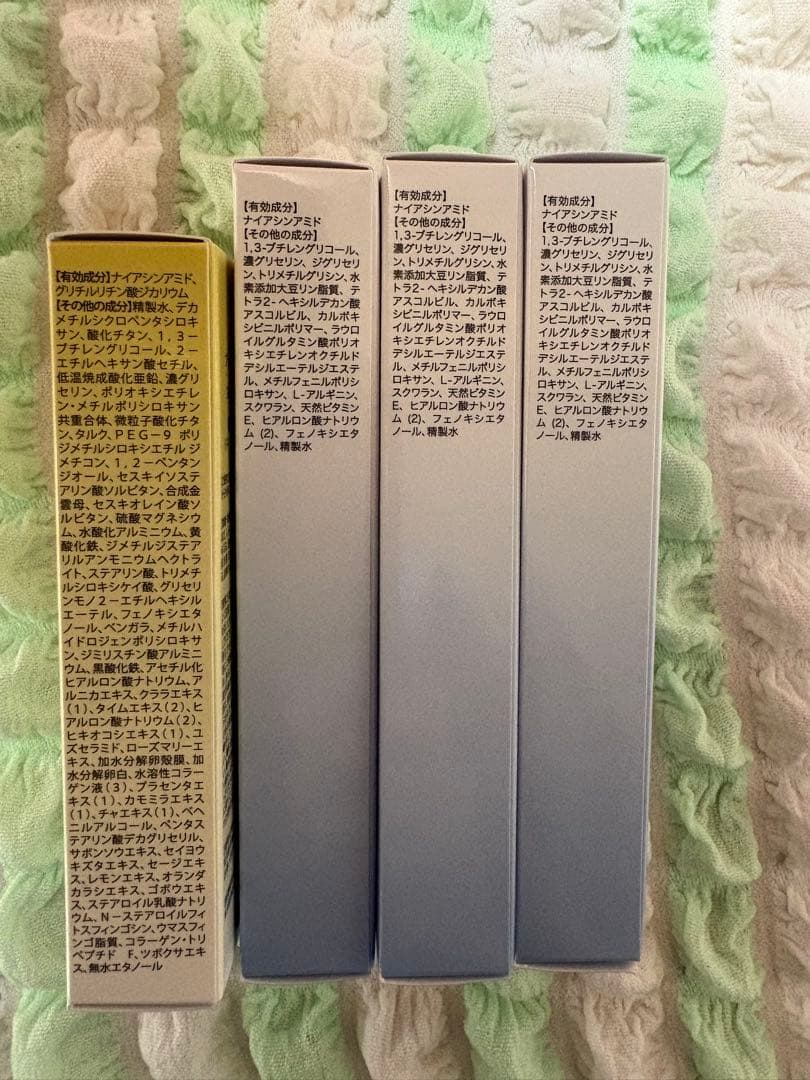 【有効成分】ナイアシンアミド、
グリチルリチン酸ジカリウム
【その他の成分】精製水、デカ
メチルシクロペンタシロキ
サン、酸化チタン、1,3－
ブチレングリコール、2－
エチルヘキサン酸セチル、
低温焼成酸化亜鉛、濃グリ
セリン、ポリオキシエチレ
ン・メチルポリシロキサン
共重合体、微粒子酸化チタ
ン、タルク、PEG－9 ポリ
ジメチルシロキシエチル ジ
メチコン、1,2－ペンタン
ジオール、セスキイソステ
アリン酸ソルビタン、合成金
雲母、セスキオレイン酸ソ
ルビタン、硫酸マグネシウ
ム、水酸化アルミニウム、黄
酸化鉄、ジメチルジステア
リルアンモニウムヘクトラ
イト、ステアリン酸、トリメチ
ルシロキシケイ酸、グリセリ
ンモノ2－エチルヘキシル
エーテル、フェノキシエタ
ノール、ベンガラ、メチルハ
イドロジェンポリシロキサ
ン、ジミリスチン酸アルミニ
ウム、黒酸化鉄、アセチル化
ヒアルロン酸ナトリウム、ア
ルニカエキス、クララエキス
(1)、タイムエキス(2)、ヒ
アルロン酸ナトリウム(2)、
ヒキオコシエキス(1)、ユ
ズセラミド、ローズマリーエ
キス、加水分解卵殻膜、加
水分解卵白、水溶性コラー
ゲン液(3)、プラセンタエ
キス(1)、カモミラエキス
(1)、チャエキス(1)、ベヘ
ニルアルコール、ペンタス
テアリン酸デカグリセリル、
サボンソウエキス、セイヨウ
キズタエキス、セージエキ
ス、レモンエキス、オランダ
カラシエキス、ゴボウエキ
ス、ステアロイル乳酸ナトリ
ウム、N－ステアロイルフィ
トスフィンゴシン、ウマスフィ
ンゴ脂質、コラーゲン・トリ
ペプチド F、ツボクサエキ
ス、無水エタノール
【有効成分】
ナイアシンアミド
【その他の成分】
1,3-ブチレングリコール、
濃グリセリン、ジグリセリ
ン、トリメチルグリシン、水
素添加大豆リン脂質、テ
トラ2-ヘキシルデカン酸
アスコルビル、カルボキ
シビニルポリマー、ラウロ
イルグルタミン酸ポリオ
キシエチレンオクチルド
デシルエーテルジエステ
ル、メチルフェニルポリシ
ロキサン、L-アルギニン、
スクワラン、天然ビタミン
E、ヒアルロン酸ナトリウ
ム (2)、フェノキシエタ
ノール、精製水
【有効成分】
ナイアシンアミド
【その他の成分】
1,3-ブチレングリコール、
濃グリセリン、ジグリセリ
ン、トリメチルグリシン、水
素添加大豆リン脂質、テ
トラ2-ヘキシルデカン酸
アスコルビル、カルボキ
シビニルポリマー、ラウロ
イルグルタミン酸ポリオ
キシエチレンオクチルド
デシルエーテルジエステ
ル、メチルフェニルポリシ
ロキサン、L-アルギニン、
スクワラン、天然ビタミン
E、ヒアルロン酸ナトリウ
ム (2)、フェノキシエタ
ノール、精製水
【有効成分】
ナイアシンアミド
【その他の成分】
1,3-ブチレングリコール、
濃グリセリン、ジグリセリ
ン、トリメチルグリシン、水
素添加大豆リン脂質、テ
トラ2-ヘキシルデカン酸
アスコルビル、カルボキ
シビニルポリマー、ラウロ
イルグルタミン酸ポリオ
キシエチレンオクチルド
デシルエーテルジエステ
ル、メチルフェニルポリシ
ロキサン、L-アルギニン、
スクワラン、天然ビタミン
E、ヒアルロン酸ナトリウ
ム (2)、フェノキシエタ
ノール、精製水